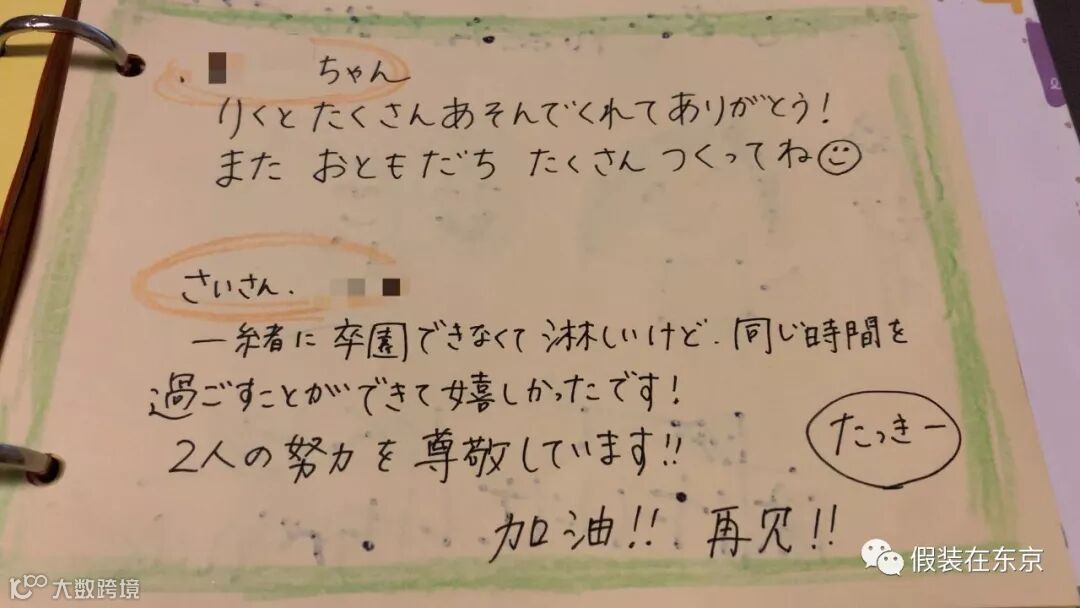 ちゃん
りくとたくさんあそんでくれてありがとう!
また おともだち たくさん つくってね
さいさん.
一緒に卒園できなくて淋しいけど.同じ時間を
過ごすことができて嬉しかったです!
2人の努力を尊敬しています!!
たっきー
加油!! 再见!!
假装在东京
大数跨境